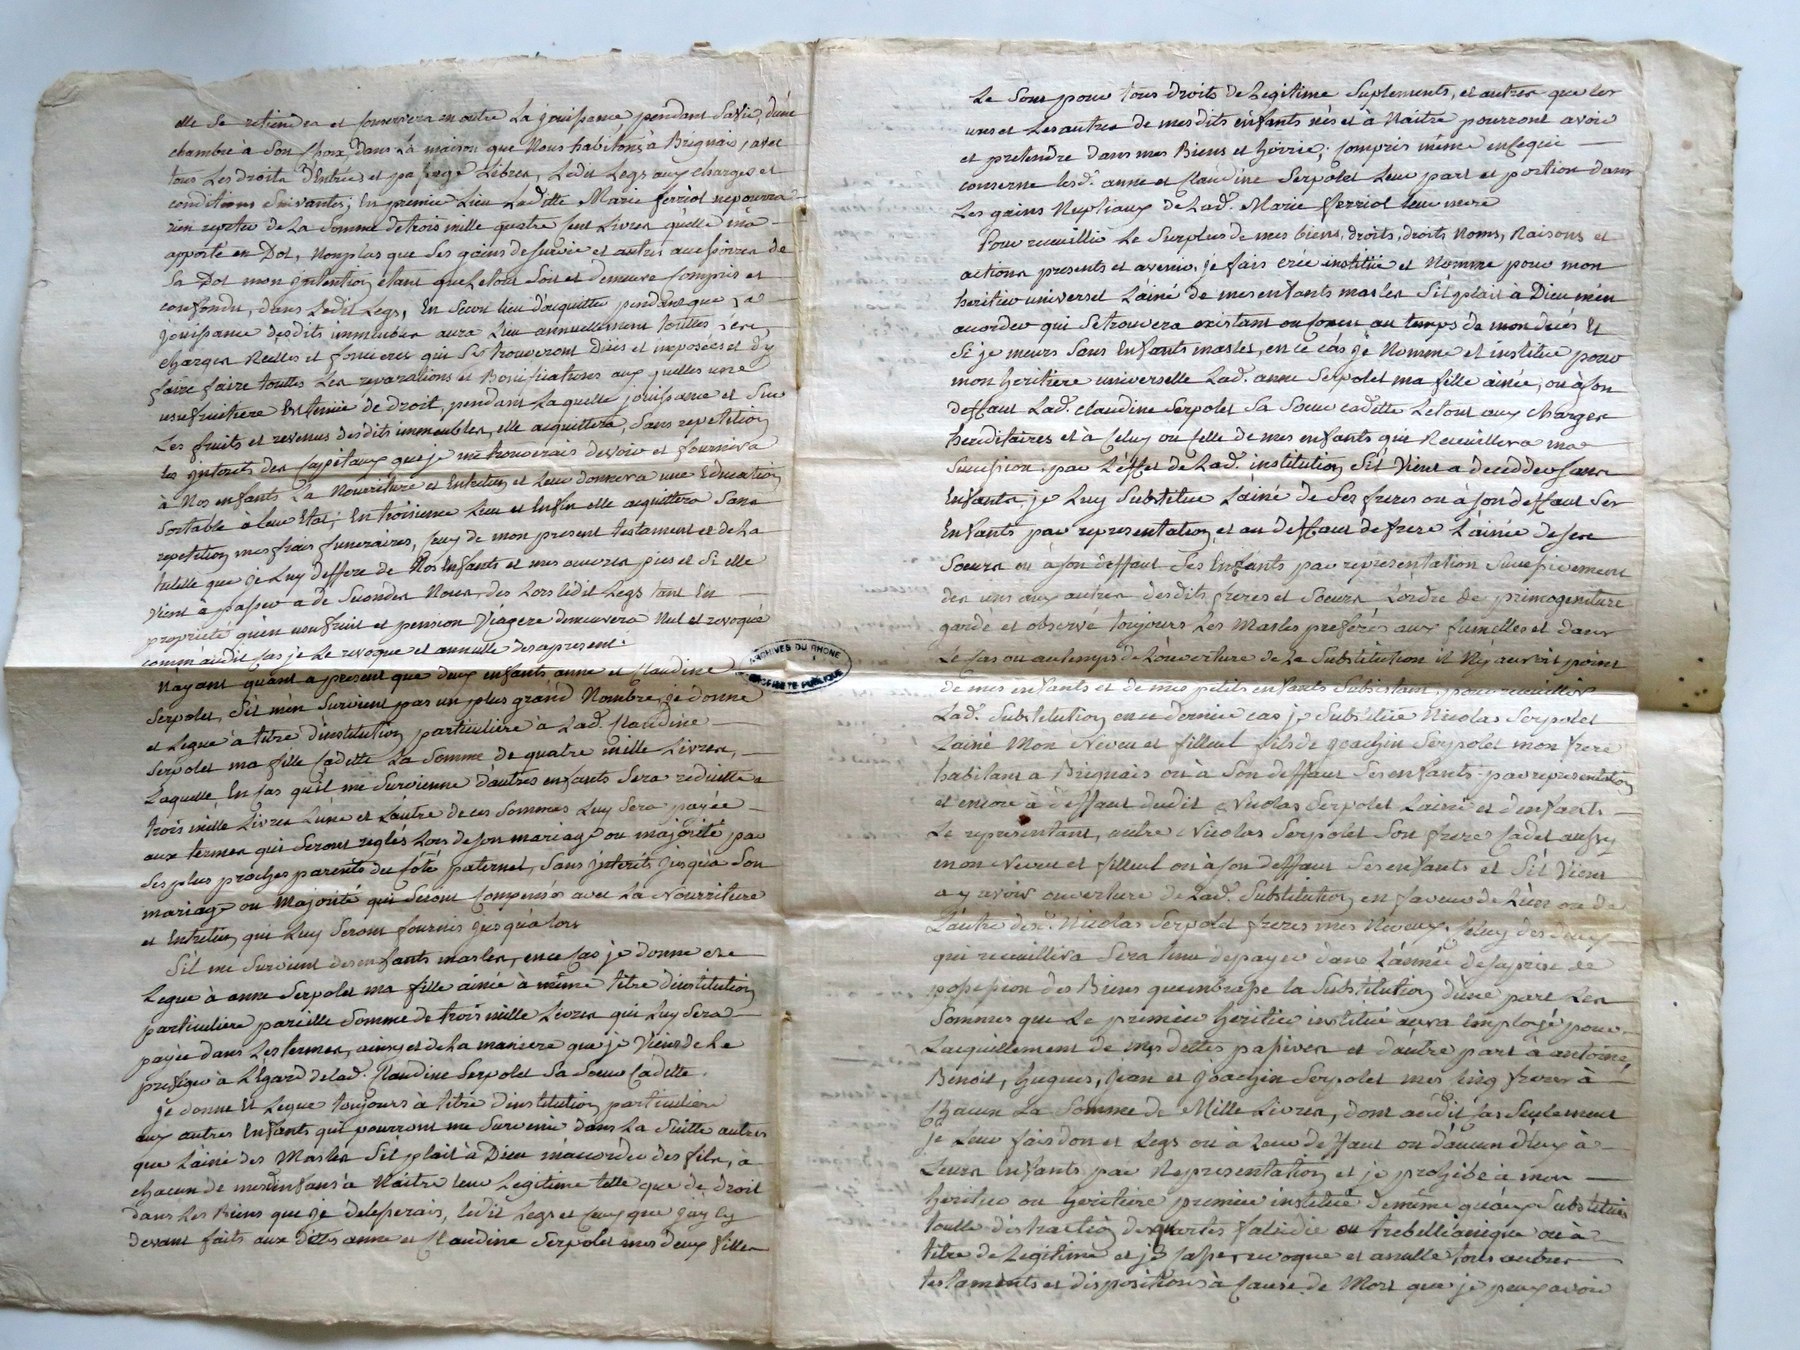 elle se retiendra et conservera en outre La jouissance pendant Sa vie, d'une
chambre à Son Choix, dans La maison que Nous habitons à Brignais, avec
tous Les droits d'Entrées et passage Libres, Ledit Legs aux charges et
conditions Suivantes, En premier Lieu Laditte Marie ferriol ne pourra
rien repeter de La Somme de trois mille quatre Cent Livres qu'elle m'a
apporté en Dot, Nonplus que Ses gains de Survie et autres accessoires de
Sa Dot mon intention étant que Le tout Soit et demeure Compris et
confondu, dans Ledit Legs, En Second lieu d'acquitter pendant que La
jouissance desdits immeubles aura Lieu annuellement touttes
charges Reelles et foncieres qui Se trouveront Dües et imposées et d'y
faire faire touttes Les reparations et Bonifications aux quelles une
usufruitiere Est tenüe de droit, pendant Laquelle jouissance et Sur
Les fruits et revenus desdits immeubles, elle acquittera, Sans repetition
les interets des Capitaux que je me trouverais devoir et fournira
à Nos enfants La Nourriture et Entretien et Leur donnera une Education
Sortable à leur Etat; En troisieme Lieu et Enfin elle acquittera Sans
repetition mes frais funeraires, Ceux de mon present testament et de La
tutelle que je Luy deffere de Nos Enfants et mes œuvres pies et Si elle
Vient à passer a de Secondes Noces, des Lors Ledit Legs tant En
propriété qu'en usufruit et pension Viagere demeurera Nul et revoqué
comm'audit Cas je Le revoque et annulle des apresent.
Nayant quant a present que deux enfants anne et Claudine
Serpolet, S'il m'en Survient pas un plus grand Nombre, Je donne
et Legue à titre d'institution particuliere à Lad. Claudine
Serpolet ma fille Cadette La Somme de quatre mille Livres,
Laquelle En Cas qu'il me Survienne d'autres enfants Sera reduitte a
trois mille Livres L'une et L'autre de ces Sommes Luy Sera payée
aux termes qui Seront reglés Lors de Son mariage ou majorité par
Ses plus proches parents du Côté paternel, Sans interets jusqu'a Son
mariage ou Majorité qui Seront Compensés avec La Nourriture
et Entretien qui Luy Seront fournis jusqu'alors
S'il me Survient des enfants masles, en ce Cas je donne et
Legue à anne Serpolet ma fille ainée à même titre d'institution
particuliere pareille Somme de trois mille Livres qui Luy Sera
payée dans Les termes, ainsy et de La maniere que je Viens de Le
prefiger à L'égard de Lad. Claudine Serpolet Sa Sœur Cadette.
je donne Et Legue toujours à titre d'institution particuliere
aux autres Enfants qui pourront me Survenir dans La Suitte autres
que L'ainé des Masles S'il plait à Dieu m'accorder des fils, à
chacun de mesdits enfans à Naitre leur Legitime telle que de droit
dans Les Biens que je delesserais, Ledit Legs et Ceux que jay Cy
devant faits aux dittes anne et Claudine Serpolet mes deux filles
ARCHIVES DU RHONE
PROPRIÉTÉ PUBLIQUE
Le Sont pour tous droits de Legitime Suplements, et autres que les
uns et Les autres de mesdits enfants nés et à Naitre pourront avoir
et pretendre dans mes Biens et hoirie, Compris même en Ce qui
conserne lesd. anne et Claudine Serpolet Leur part et portion dans
Les gains Nuptiaux de Lad. Marie ferriol leur mere
Pour recueillir Le Surplus de mes biens, droits, droits Noms, Raisons et
actions presents et avenir, je fais crée institüe et Nomme pour mon
heritier universel L'ainé de mes enfants masles S'il plait à Dieu m'en
acorder qui Se trouvera existant ou Concu au temps de mon decés Et
Si je meurs Sans Enfants masles, en ce cas je Nomme et institue pour
mon heritiere universelle Lad. anne Serpolet ma fille ainée, ou à Son
deffaut Lad. Claudine Serpolet Sa Sœur cadette Le tout aux charges
hereditaires et à Celuy ou Celle de mes enfants qui Recueillera ma
Succession par L'effet de Lad. institution S'il Vient a decedder Sans
Enfants, je Luy Substitue L'ainé de Ses freres ou à Son deffaut Ses
Enfants par representation, et au deffaut de frere L'ainée de Ses
Sœurs ou à Son deffaut Ses Enfants par representation Successivement
des uns aux autres desdits freres et Sœurs L'ordre de primogeniture
gardé et observé toujours Les Masles preferés aux fumelles et dans
Le Cas ou au temps de L'ouverture de La Substitution il N'y auroit point
de mes enfants et de mes petits enfants Subsistant pour recueillir
Lad. Substitution, en ce dernier cas je Substitüe Nicolas Serpolet
Lainé Mon Neveu et filleul fils de Joachin Serpolet mon frere
habitant a Brignais ou à Son deffaut Ses enfants par representation
et encore à deffaut dudit Nicolas Serpolet Lainé et d'enfants
Le representant, autre Nicolas Serpolet Son frere Cadet aussy
mon Neveu et filleul ou à Son deffaut Ses enfants et S'il Vient
a y avoir ouverture de Lad. Substitution en faveur de L'un ou de
L'autre desd. Nicolas Serpolet freres mes Neveux, Celuy des deux
qui recueillira Sera tenu de payer dans L'année de Sa prise de
possession des Biens qu'embrasse la Substitution d'une part Les
Sommes que Le premier heritier institué aura Employé pour
L'acquittement de mes dettes passives et d'autre part à antoine,
Benoit, hugues, Jean et Joachin Serpolet mes Cinq freres à
Chacun La Somme de Mille Livres, dont audit Cas Seulement
je Leur fais don et Legs ou à Leur deffaut ou d'aucun d'Eux à
Leurs Enfants par Representation et je prohibe à mon
heritier ou heritiere premier institué de même qu'aux Substitués
toutte distraction de quartes falcidie ou trebellianique ou à
titre de Legitime et je Casse, revoque et annulle tous autres
testaments et dispositions à Cause de Mort que je peux avoir